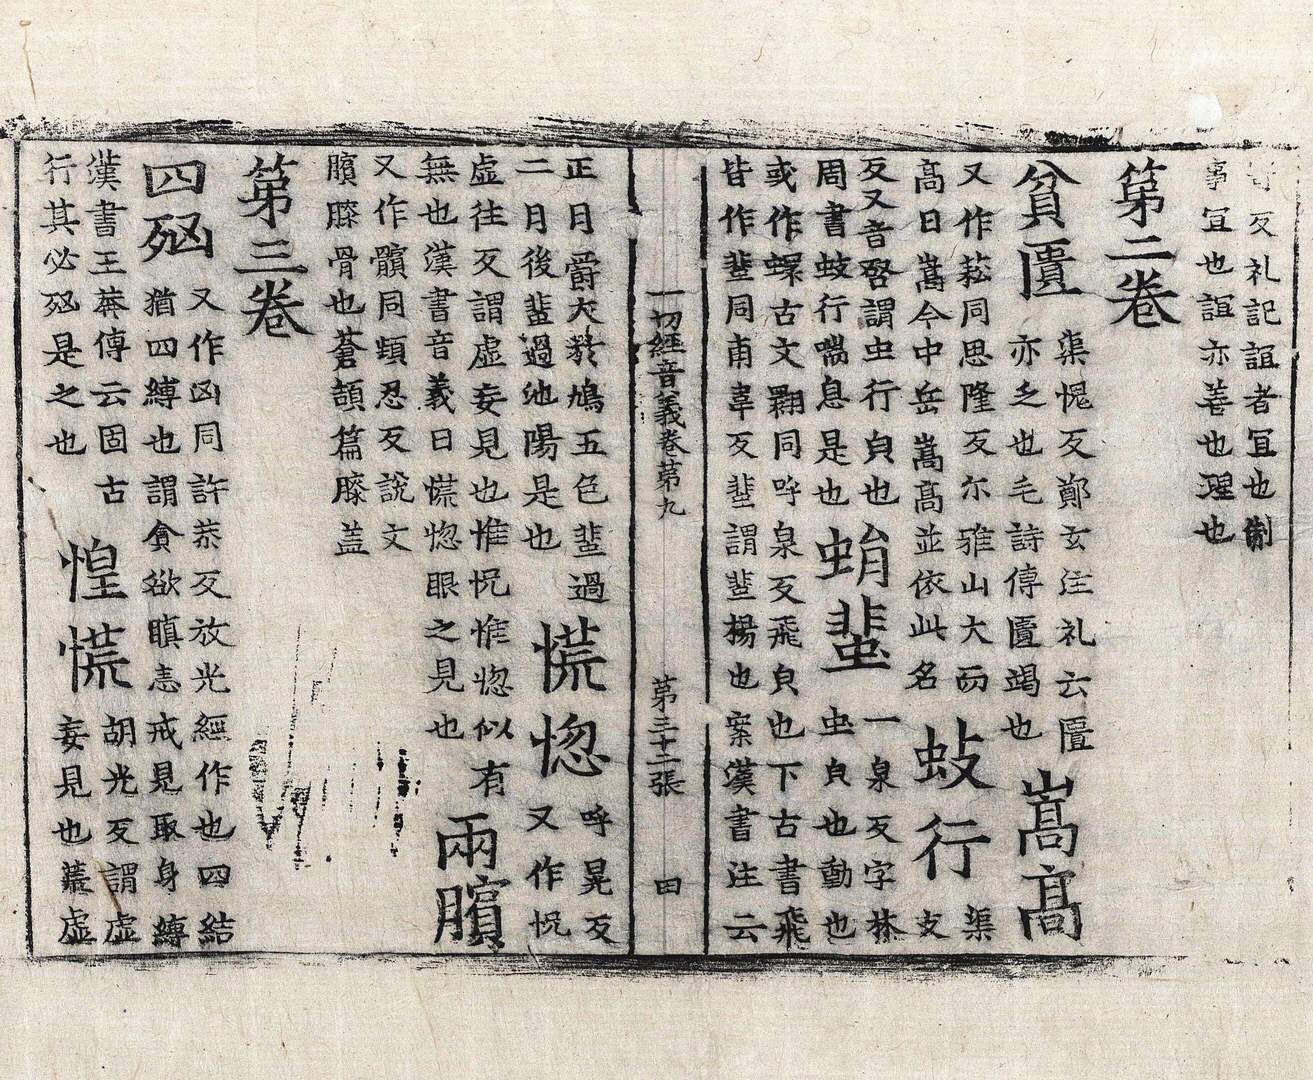 奇反礼記誼者冝也制
事冝也誼亦善也理也
第二卷
貧匱
渠愧反鄭玄注礼云匱
亦乏也毛詩傳匱竭也
嵩髙
又作菘同思隆反尒雅山大而
髙曰嵩今中岳嵩髙並依此名
蚑行
渠
支
反又音啓謂虫行皃也
周書蚑行喘息是也
蜎蜚
一泉反字林
虫皃也動也
或作蠉古文翾同呼泉反飛皃也下古書飛
皆作蜚同甫韋反蜚謂蜚揚也案漢書注云
一切經音義卷第九 第三十二張 田
正月爵大於鳩五色蜚過
二月後蜚過池陽是也
慌惚
呼晃反
又作怳
虛往反謂虛妄見也惟怳惟惚似有
無也漢書音義曰慌惚眼之見也
兩臏
又作髕同頻忍反說文
臏膝骨也蒼頡篇膝蓋
第三卷
四𣧑
又作凶同許恭反放光經作也四結
猶四縛也謂貪欲瞋恚戒見取身縛
漢書王莽傳云固古
行其必𣧑是之也
惶慌
胡光反謂虛
妄見也叢虛